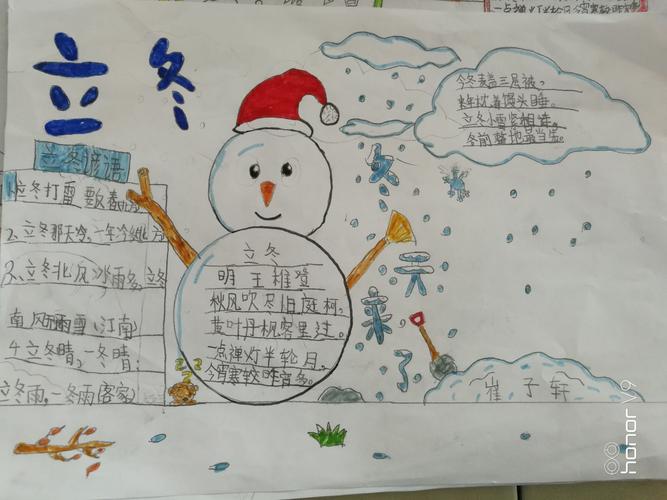 立冬
立冬谚语
1、立冬打雷要
2、立冬那天冷,一年冷
3、立冬北风冰雨多,立冬
南风雨雪(江南)
4、立冬晴,一冬晴;
立冬雨,一冬雨(客家)
立冬
明 王稚登
秋风吹尽旧庭柯,
黄叶丹枫客里过。
一点禅灯半轮月,
今宵寒较昨宵多。
今冬麦盖三层被,
来年枕着馒头睡。
立冬小雪紧相连。
冬前整地最当先。
冬
天
来
了
崔子轩
honor V9